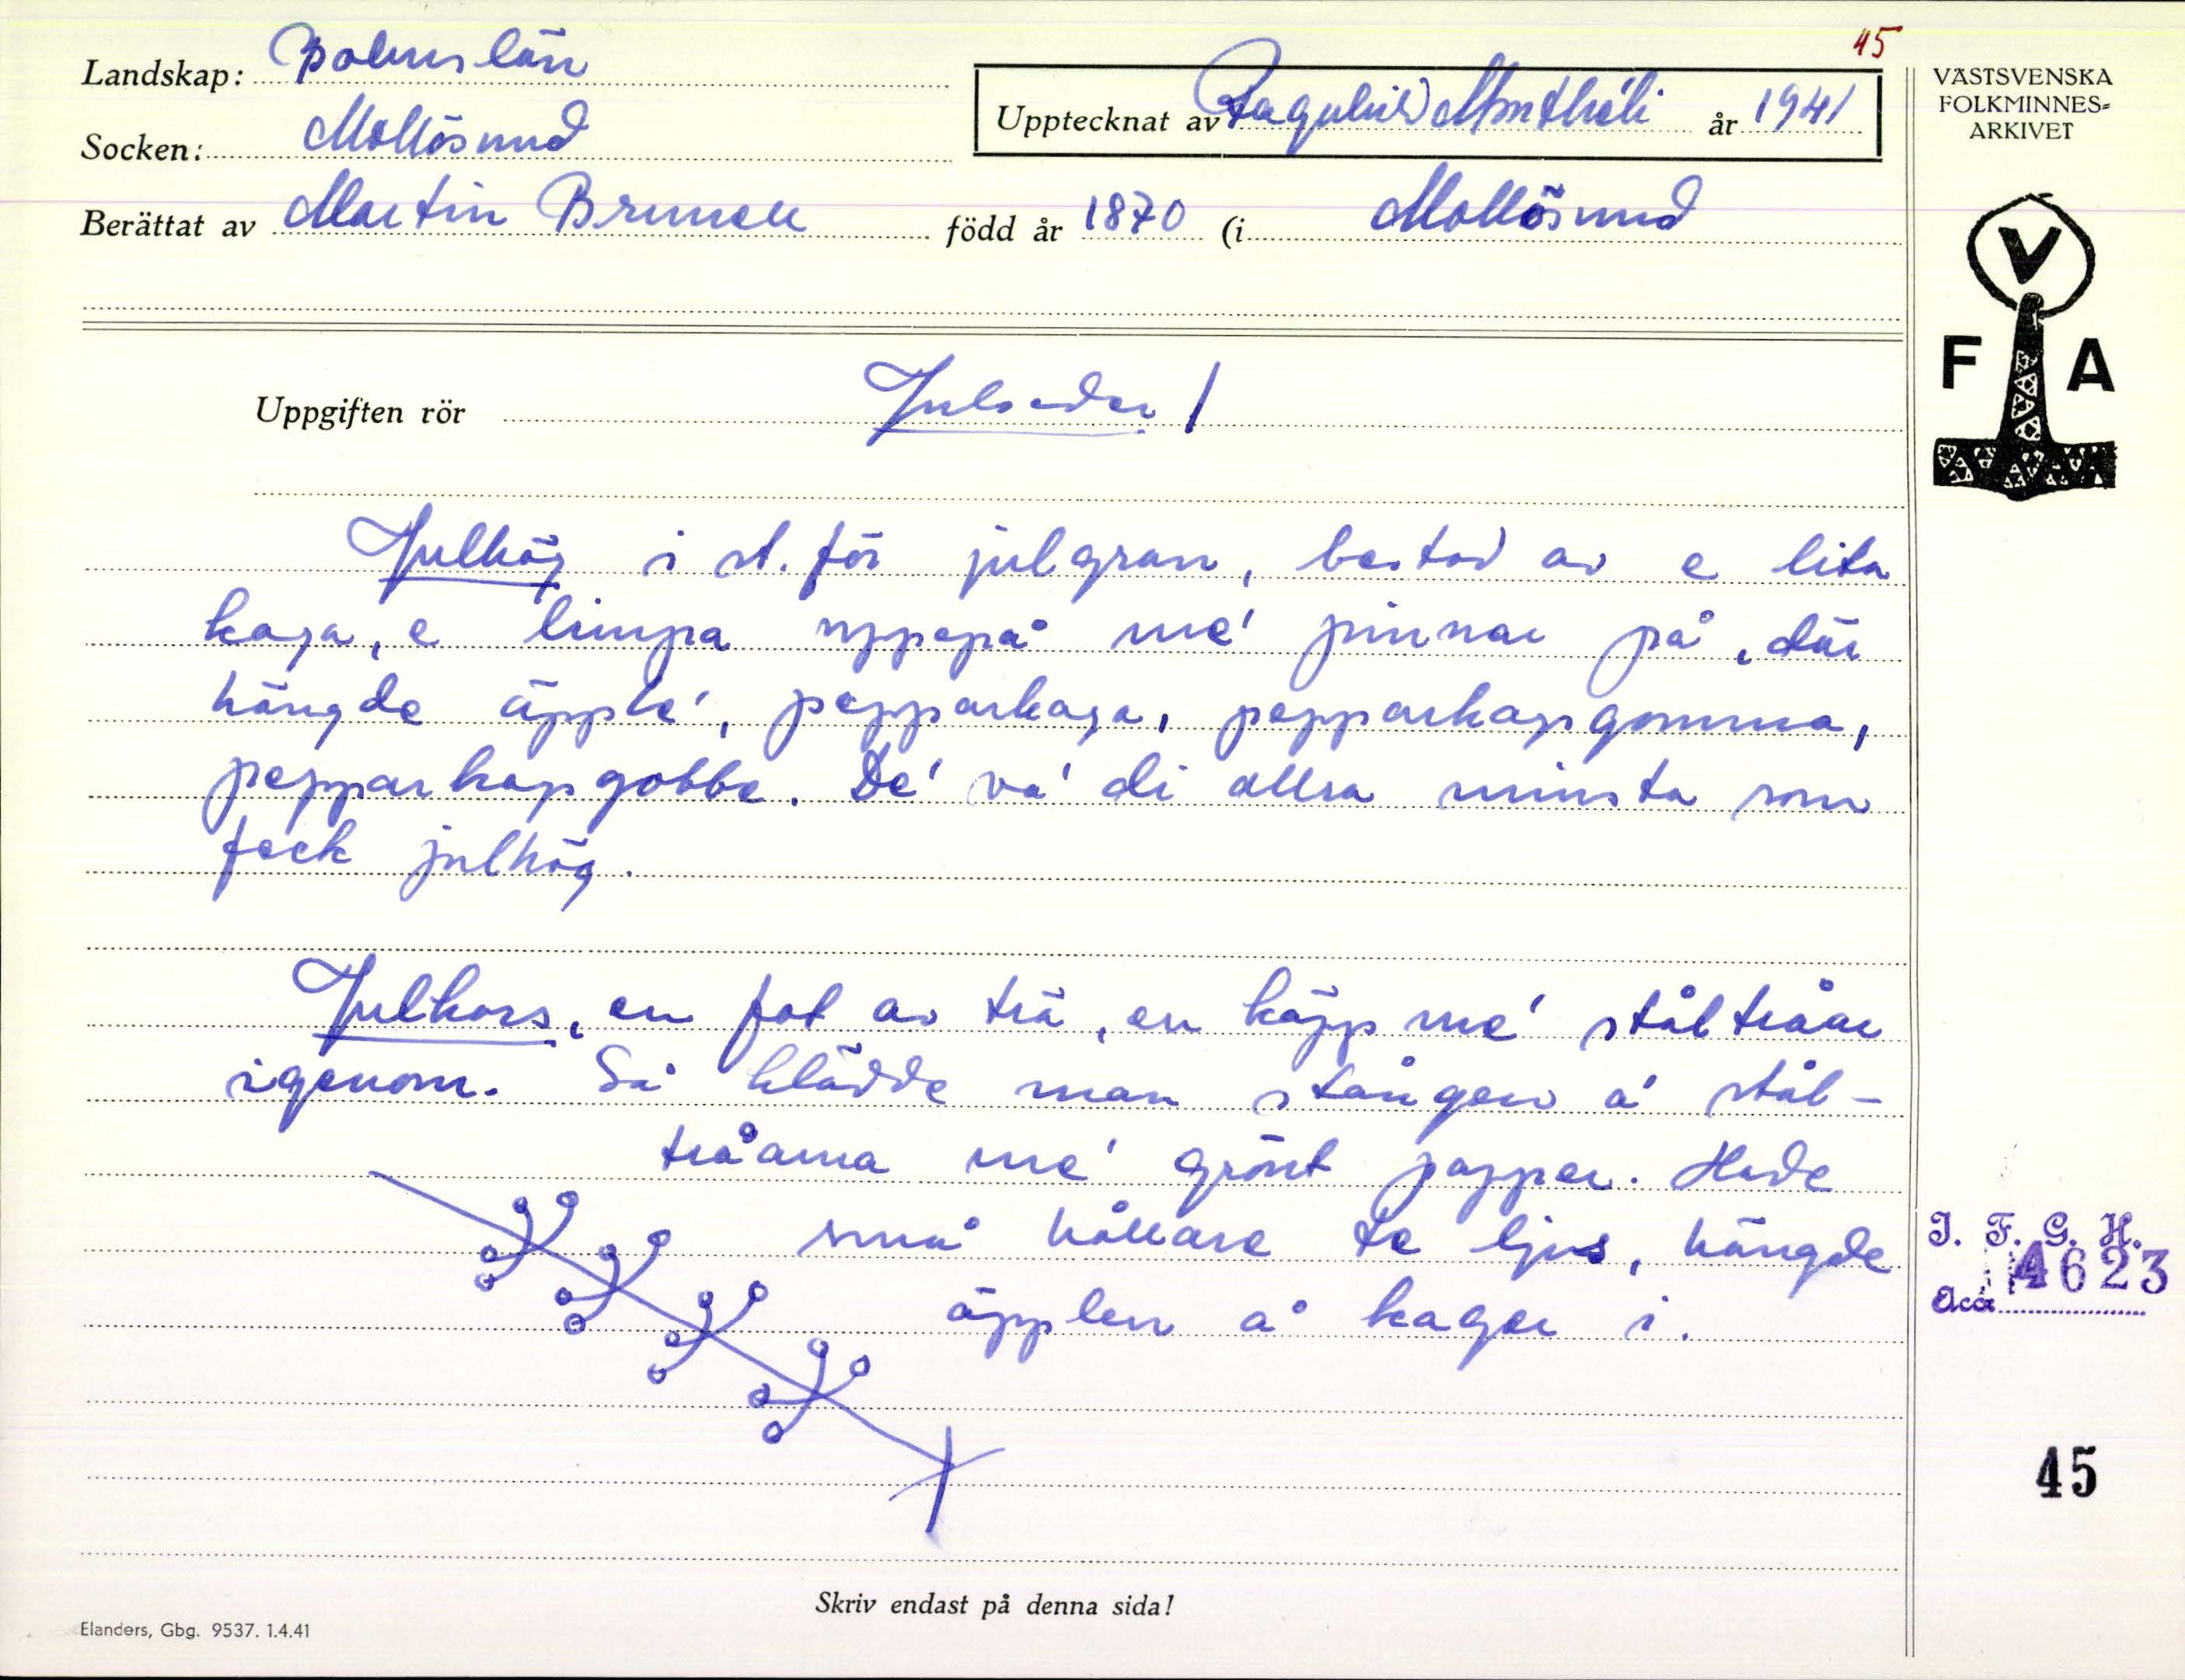 45
Landskap: Bohuslän
Socken: Mollösund
Upptecknat av Ragnhild Monthéli år 1941
Berättat av Martin Brunell född år 1870 (i Mollösund
VÄSTSVENSKA
FOLKMINNES-
ARKIVET
V
F A
Uppgiften rör Julseder /
Julhög i st. för julgran, bestod av e lita
kaga, e limpa uppepå me' pinnar på, där
hängde äpple', pepparkaga, pepparkagsgomma,
pepparkagsgobbe. De' va' di allra minsta som
feck julhög.
Julkors, en fot av trä, en käpp me' ståltråar
igenom. Så klädde man stången å' stål-
tråarna me' grönt papper. Hade
små hållare te ljus, hängde
äpplen å kager i.
I. F. G. H.
4623
Acc.
45
Skriv endast på denna sida!
Elanders, Gbg. 9537. 1.4.41